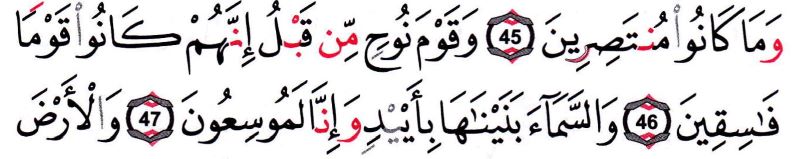 وَمَا كَانُوا۟ مُنتَصِرِينَ 45 وَقَوْمَ نُوحٍ مِّن قَبْلُ إِنَّهُمْ كَانُوا۟ قَوْمًا
فَـٰسِقِينَ 46 وَالسَّمَآءَ بَنَيْنَـٰهَا بِأَيْي۟دٍ وَإِنَّا لَمُوسِعُونَ 47 وَالْأَرْضَ